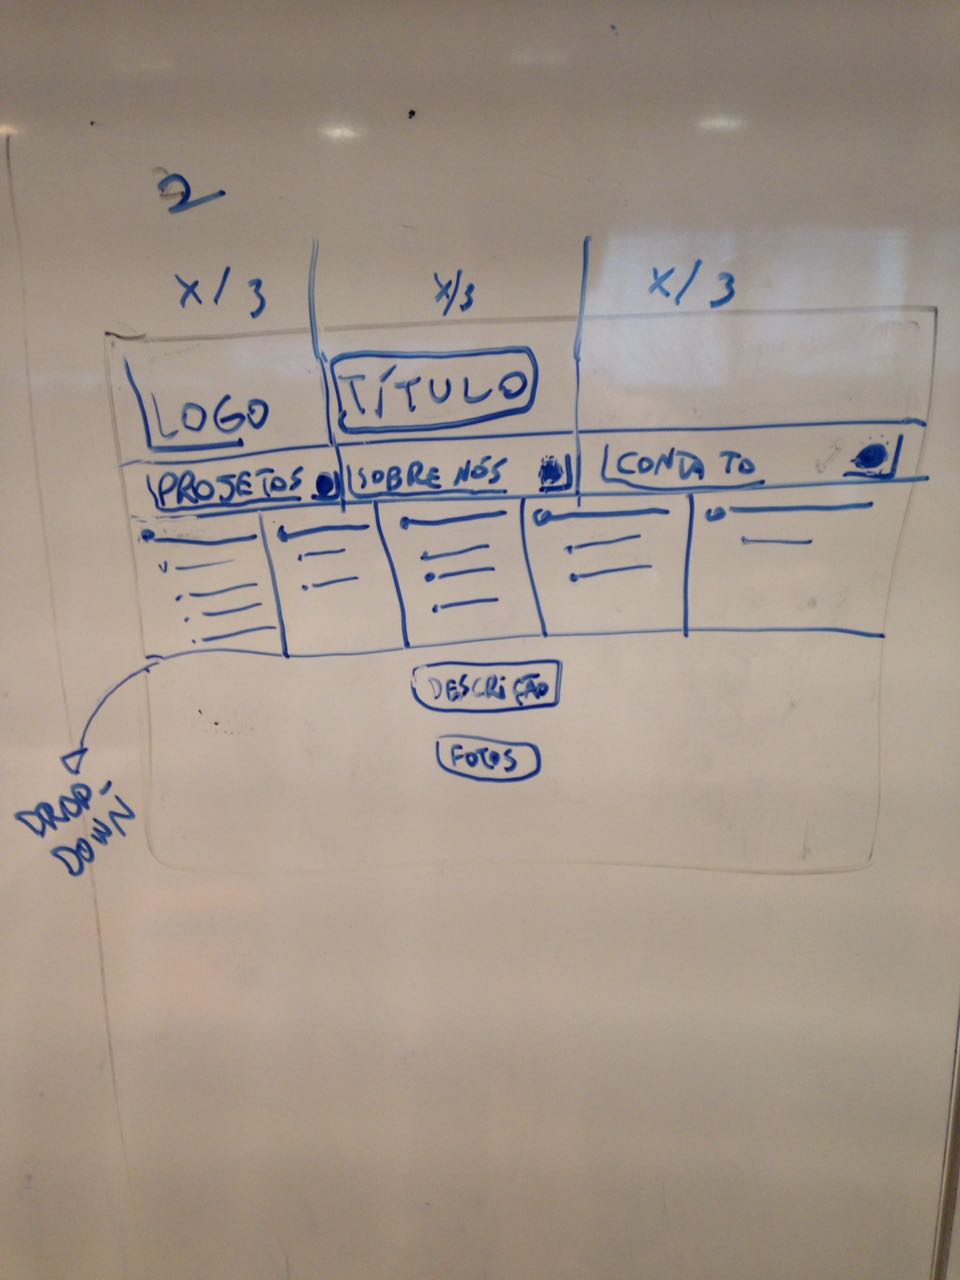 2
X/3 X/3 X/3
LOGO TÍTULO
PROJETOS SOBRE NÓS CONTATO
DESCRIÇÃO
FOTOS
DROP-
DOWN